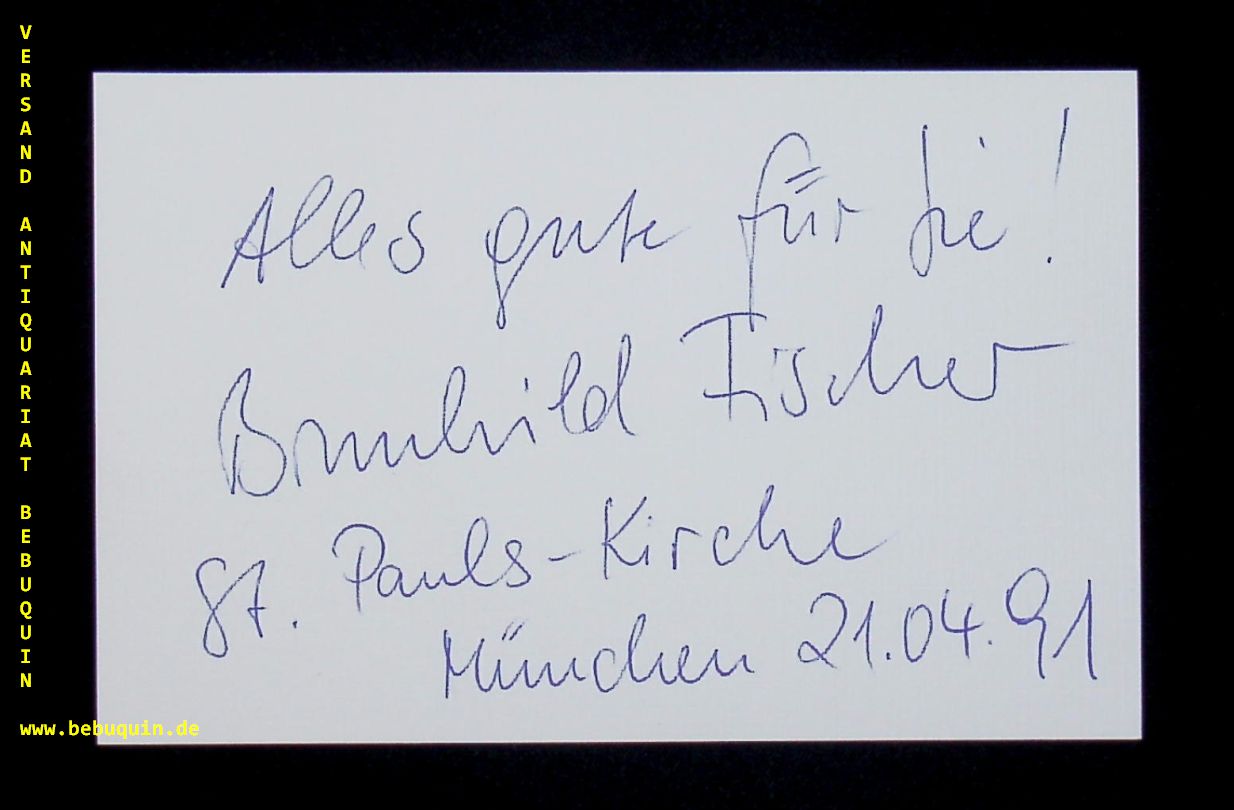 VERSAND ANTIQUARIAT BEBUQUIN
Alles gute für Sie!
Brunhild Fischer
St. Pauls-Kirche
München 21.04.91
www.bebuquin.de